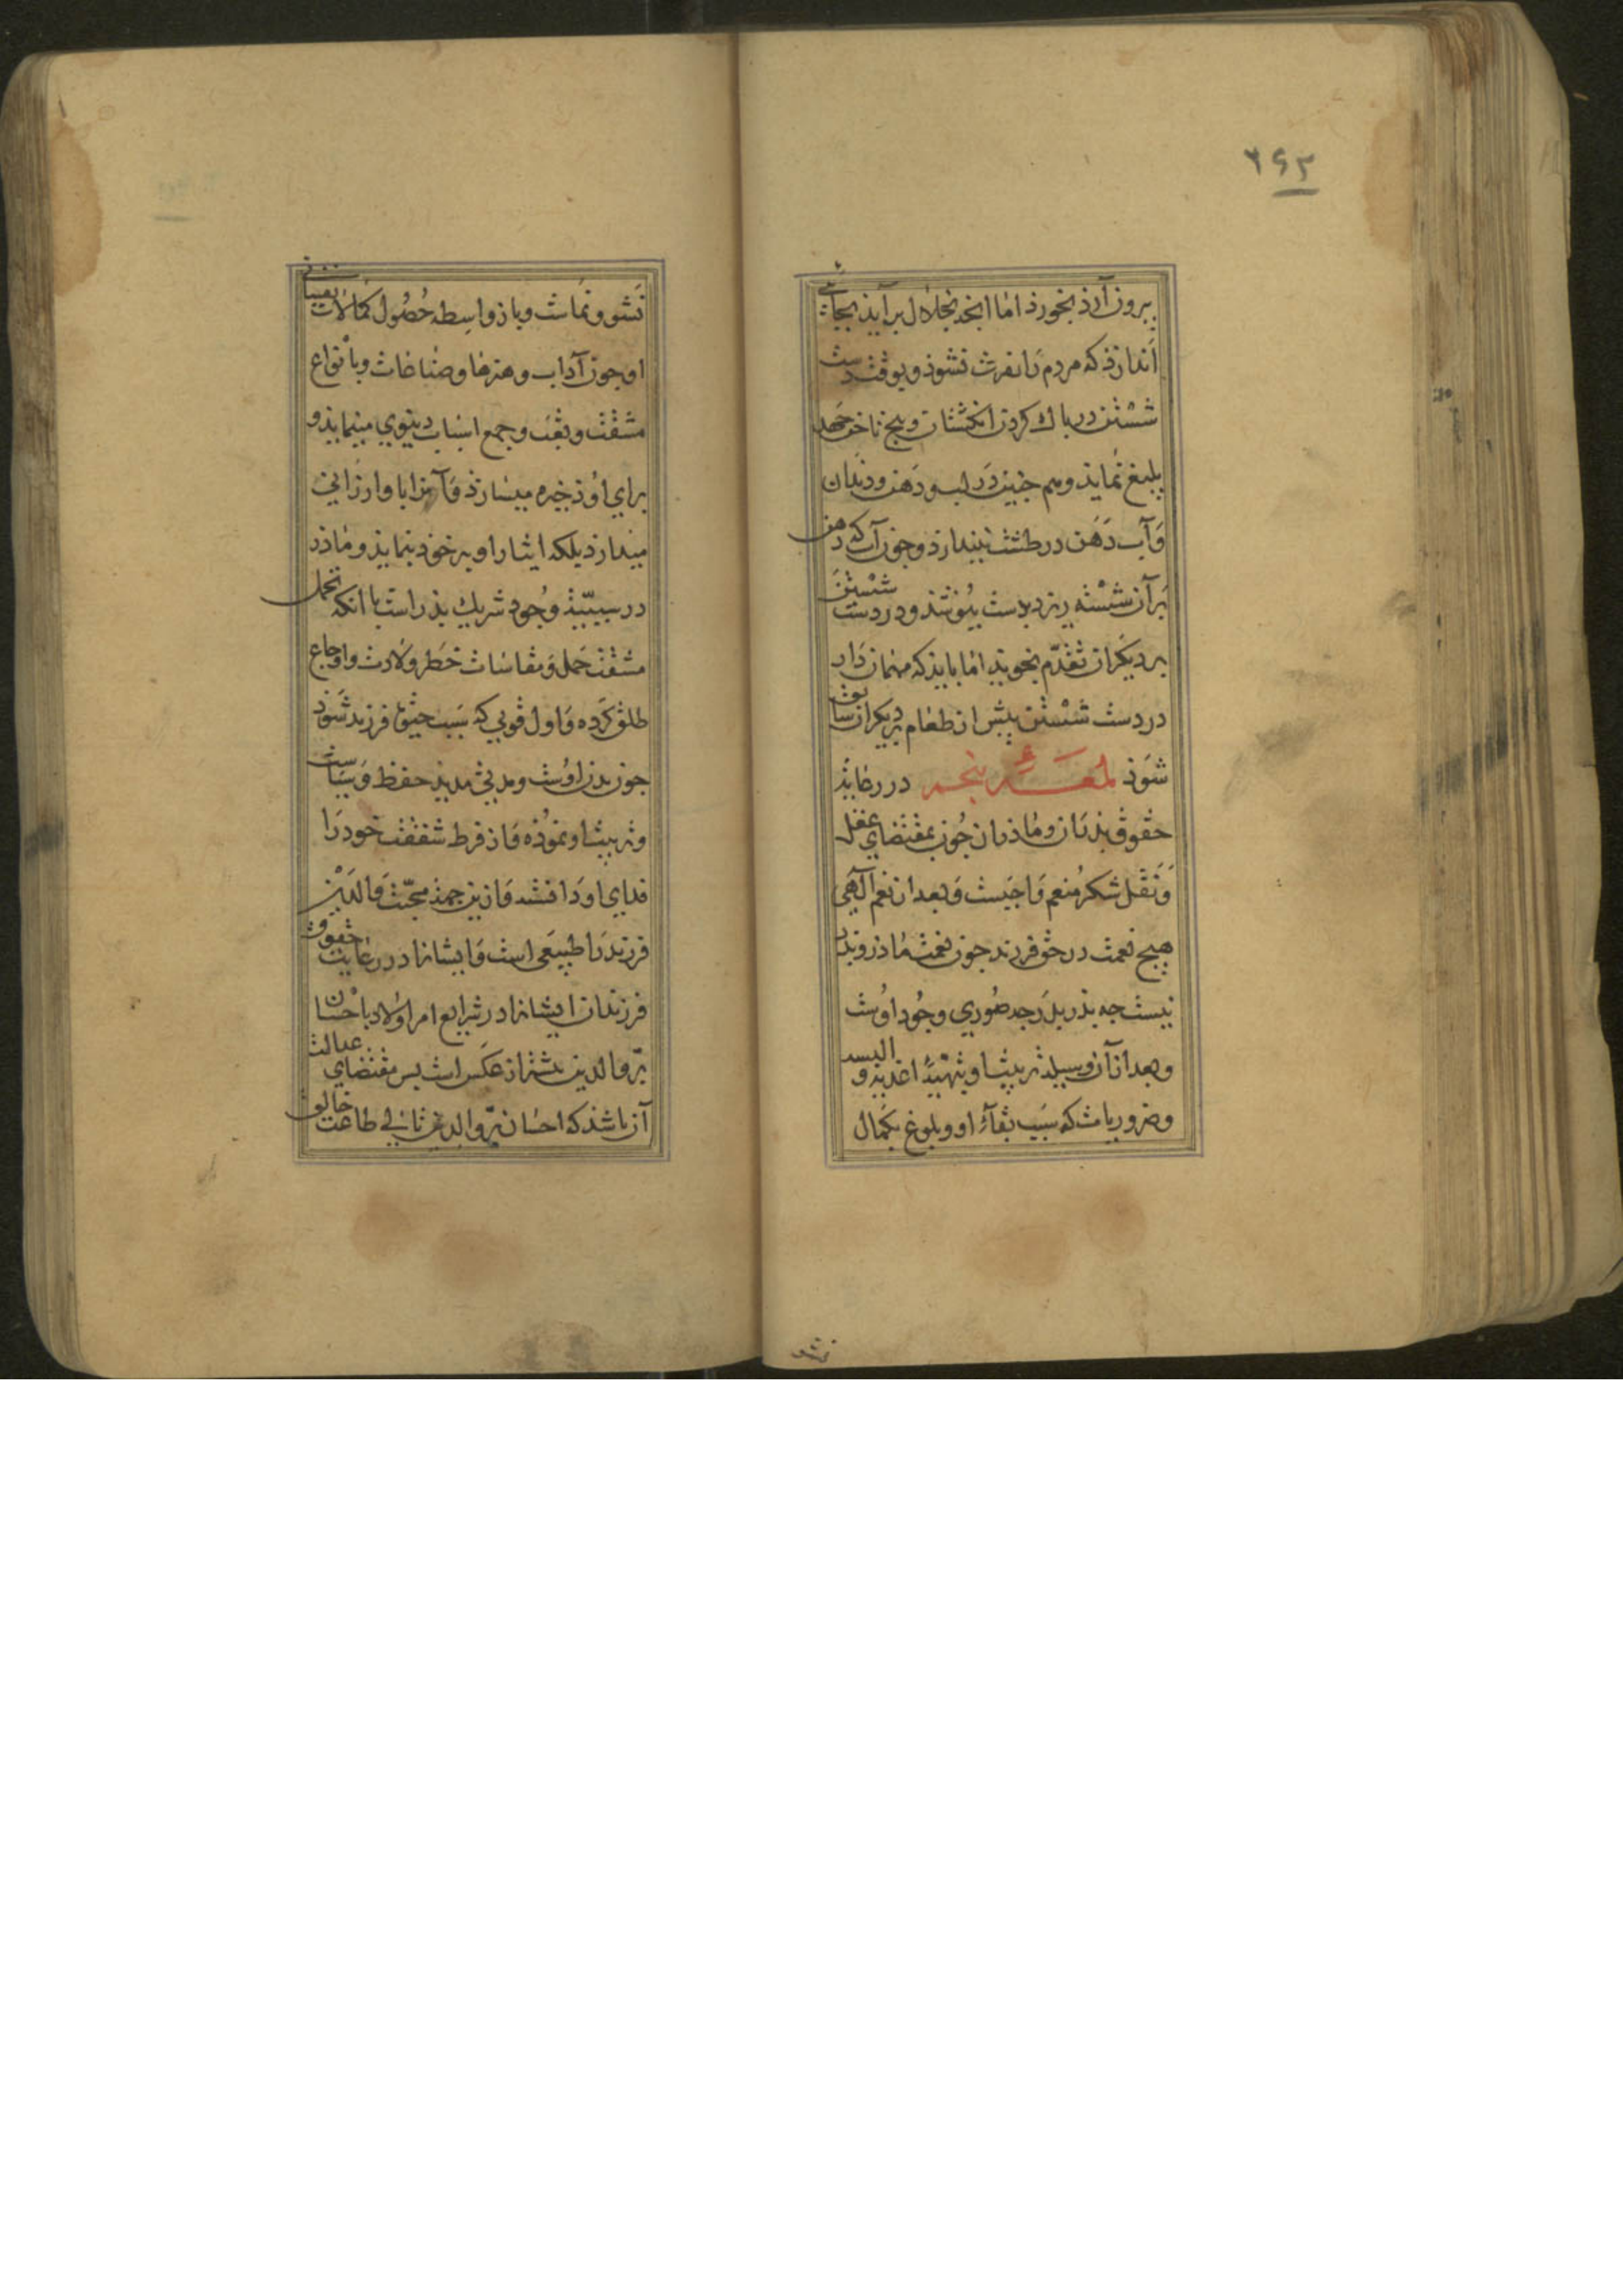 ۲۶۲
بیرون آرذ بخورذ اما انچه بخلال بر آیذ بجائی
اندازذ که مردم را نفرت نشوذ و بوقت دست
شستن در پاك كردن انکشتان و بیخ ناخن جهد
بلیغ نمایذ و هم جنین در لب و دهن و دندان
و آب دهن در طشت نیندازذ و جون آب که دهن
بر آن شسته ریزد بدست بپوشذ و در دست شستن
بر دیکران تقدم نجویذ اما بایذ که مهمان دار
در دست شستن پیش از طعام بر دیکران سابق
شوذ لمعهٔ پنجم در رعایت
حقوق پدران و ماذران جون بمقتضای عقل
و نقل شکر منعم واجبست و بعد از نعم آلهی
هیچ نعمت در حق فرزند جون نعمت ماذر و پدر
نیست جه پذر بدرجه صوری وجود اوست
و بعد از آن وسیلهٔ تربیت او بتهیهٔ اغذیه و البسه
و ضروریات که سبب بقاء او و بلوغ بکمال
نشو
نشو و نماست و باز واسطه حصول کمالات نفسانی
او جون آداب و هنرها و صناعات و بأنواع
مشقت و تعب و جمع اسباب دنیوی مینمایذ و
برای او ذخیره میسازذ و آنرا با و ارزانی
میدارذ بلکه ایثار او بر خوذ بنمایذ و ماذر
در سببیت وجود شریك پذر است با انکه تحمل
مشقت حمل و مقاسات خطر ولادت و اوجاع
طلق کرده و اول قوتی که سبب حیوة فرزند شوذ
جون بدن اوست و مدتی مدیذ حفظ و سیاست
و تربیت او نموذه و از فرط شفقت خود را
فدای او داشته و ازین جهة محبت والدین
فرزند را طبیعی است و ایشانرا در رعایت حقوق
فرزندان ایشانرا در شرایع امر اولاد باحسان
برّ والدین بیشتر از عکس است پس مقتضای عدالت
آن باشذ که احسان برّ والدین ثانی طاعت خالق